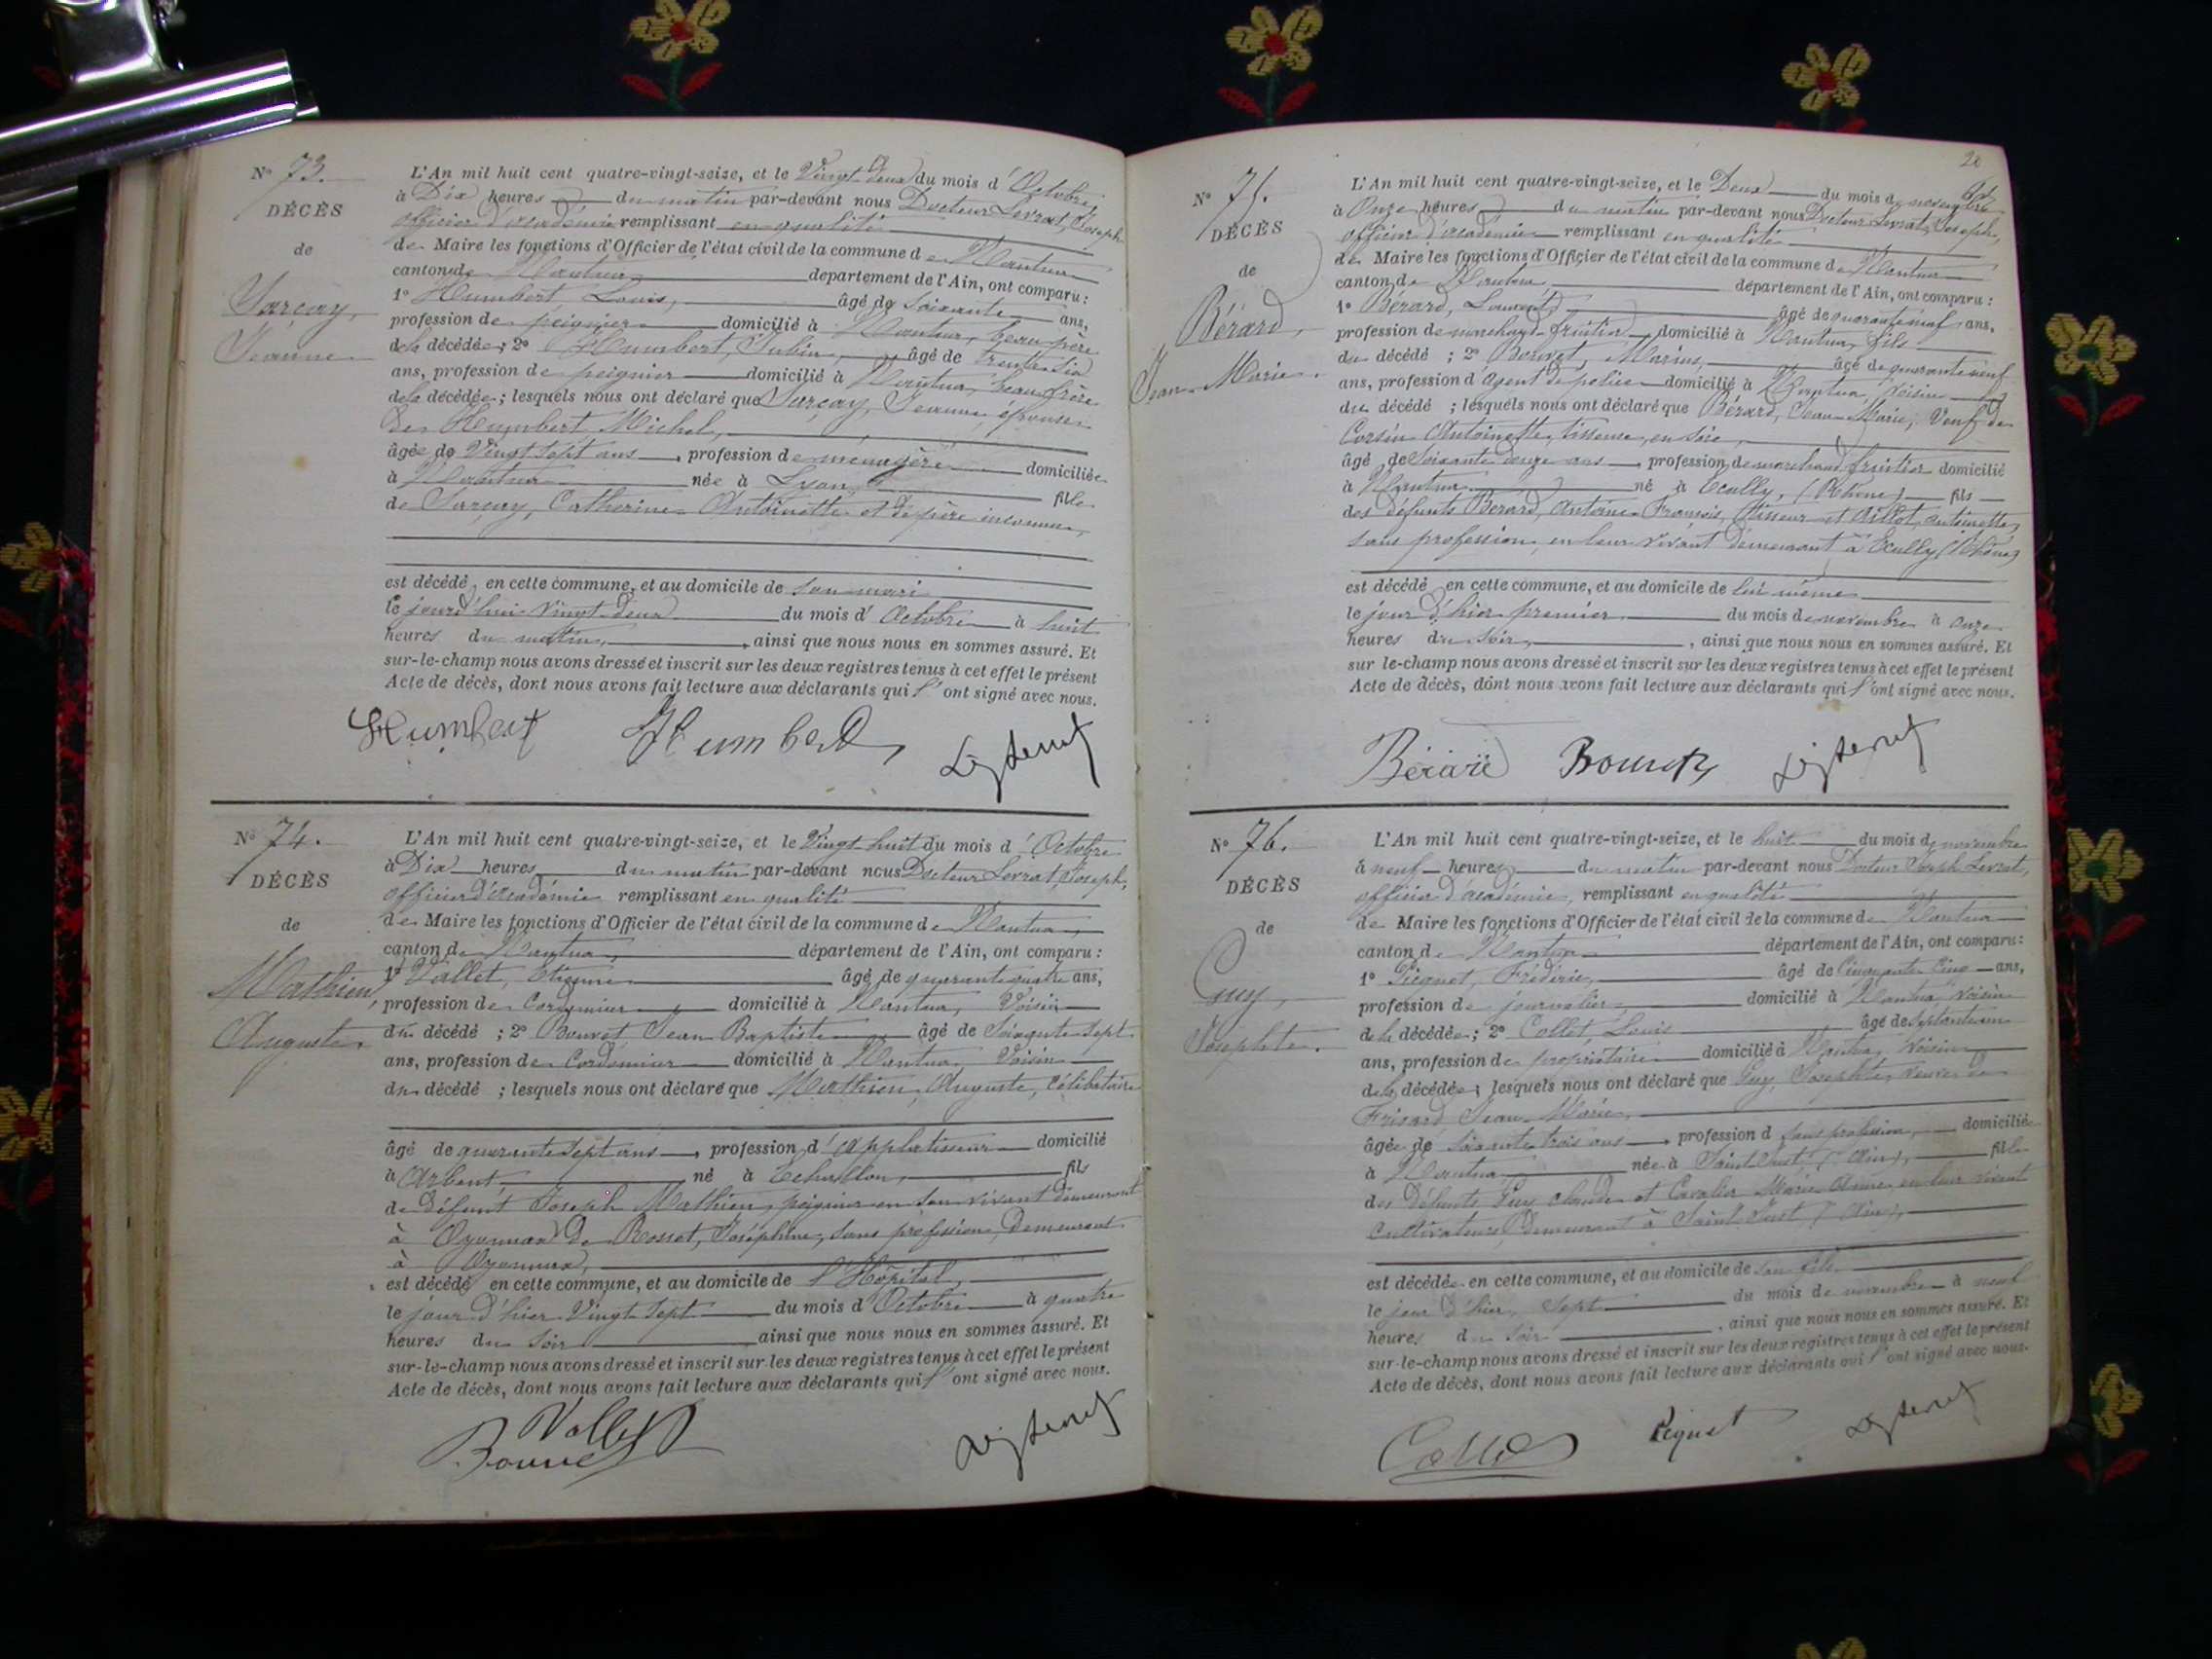 N° 73.
DÉCÈS
de
Sarcay,
Jeanne.
L'An mil huit cent quatre-vingt-seize, et le Vingt deux du mois d'Octobre,
à Dix heures du matin par-devant nous Docteur Levrat, Joseph
officier d'académie remplissant en qualité
de Maire les fonctions d'Officier de l'état civil de la commune de Nantua
canton de Nantua département de l'Ain, ont comparu :
1° Humbert, Louis, âgé de Soixante ans,
profession de peignier domicilié à Nantua, beau père
de la décédée ; 2° Humbert, Jubin, âgé de trente six
ans, profession de peignier domicilié à Nantua, beau frère
de la décédée ; lesquels nous ont déclaré que Sarcay, Jeanne, épouse
de Humbert Michel,
âgée de Vingt sept ans, profession de ménagère domiciliée
à Nantua née à Lyon, fille
de Sarcay, Catherine Antoinette et de père inconnu,
est décédé, en cette commune, et au domicile de son mari
le jourd'hui vingt deux du mois d'Octobre à huit
heures du matin, ainsi que nous nous en sommes assuré. Et
sur-le-champ nous avons dressé et inscrit sur les deux registres tenus à cet effet le présent
Acte de décès, dont nous avons fait lecture aux déclarants qui l'ont signé avec nous.
Humbert Humbert
N° 74.
DÉCÈS
de
Mathieu,
Auguste.
L'An mil huit cent quatre-vingt-seize, et le Vingt huit du mois d'Octobre
à Dix heures du matin par-devant nous Docteur Levrat, Joseph,
officier d'académie remplissant en qualité
de Maire les fonctions d'Officier de l'état civil de la commune de Nantua,
canton de Nantua, département de l'Ain, ont comparu :
1° Vallet, Etienne âgé de quarante quatre ans,
profession de Cordonnier domicilié à Nantua, Voisin
du décédé ; 2° Bouvet Jean Baptiste âgé de Soixante sept
ans, profession de Cordonnier domicilié à Nantua, Voisin
du décédé ; lesquels nous ont déclaré que Mathieu, Auguste, Célibataire
âgé de quarante sept ans, profession d'applatisseur domicilié
à Arbent né à Echallon, fils
de défunt Joseph Mathieu, peignier en son vivant demeurant
à Oyonnax et de Rosset, Joséphine, sans profession, Demeurant
à Oyonnax,
est décédé en cette commune, et au domicile de l'Hôpital,
le jour d'hier Vingt sept du mois d'Octobre à quatre
heures du soir ainsi que nous nous en sommes assuré. Et
sur-le-champ nous avons dressé et inscrit sur les deux registres tenus à cet effet le présent
Acte de décès, dont nous avons fait lecture aux déclarants qui l'ont signé avec nous.
Vallet
Bouvet
28
N° 75.
DÉCÈS
de
Bérard,
Jean-Marie.
L'An mil huit cent quatre-vingt-seize, et le Deux du mois de novembre
à Onze heures du matin par-devant nous Docteur Levrat, Joseph,
officier d'académie remplissant en qualité
de Maire les fonctions d'Officier de l'état civil de la commune de Nantua
canton de Nantua département de l'Ain, ont comparu :
1° Bérard, Laurent, âgé de quarante neuf ans,
profession de marchand fruitier domicilié à Nantua, fils
du décédé ; 2° Bouvet, Marius, âgé de quarante neuf
ans, profession d'agent de police domicilié à Nantua, Voisin
du décédé ; lesquels nous ont déclaré que Bérard, Jean-Marie, Veuf de
Corsin Antoinette, tisseuse en soie,
âgé de Soixante douze ans, profession de marchand fruitier domicilié
à Nantua né à Ecully, (Rhône) fils
des défunts Bérard, Antoine François, tisseur et Aillot, antoinette,
sans profession, en leur vivant demeurant à Ecully (Rhône)
est décédé en cette commune, et au domicile de lui même
le jour d'hier premier du mois de novembre à onze
heures du soir, ainsi que nous nous en sommes assuré. Et
sur le-champ nous avons dressé et inscrit sur les deux registres tenus à cet effet le présent
Acte de décès, dont nous avons fait lecture aux déclarants qui l'ont signé avec nous.
Bérard Bouvet
N° 76.
DÉCÈS
de
Guy,
Josephte.
L'An mil huit cent quatre-vingt-seize, et le huit du mois de novembre
à neuf heures du matin par-devant nous Docteur Joseph Levrat,
officier d'académie, remplissant en qualité
de Maire les fonctions d'Officier de l'état civil de la commune de Nantua
canton de Nantua département de l'Ain, ont comparu :
1° Piquet, Frédéric, âgé de Cinquante Cinq ans,
profession de journalier domicilié à Nantua, Voisin
de la décédée ; 2° Collet, Louis âgé de septante un
ans, profession de propriétaire domicilié à Nantua, Voisin
de la décédée ; lesquels nous ont déclaré que Guy, Josephte, veuve de
Frisard Jean-Marie,
âgée de soixante trois ans, profession d sans profession, domiciliée
à Nantua née à Saint-Just (Ain), fille
des défunts Guy, Claude et Cavalier Marie Anne, en leur vivant
cultivateurs, demeurant à Saint-Just (Ain),
est décédée en cette commune, et au domicile de son fils
le jour d'hier, Sept du mois de novembre à neuf
heures du soir, ainsi que nous nous en sommes assuré. Et
sur-le-champ nous avons dressé et inscrit sur les deux registres tenus à cet effet le présent
Acte de décès, dont nous avons fait lecture aux déclarants qui l'ont signé avec nous.
Collet Piquet